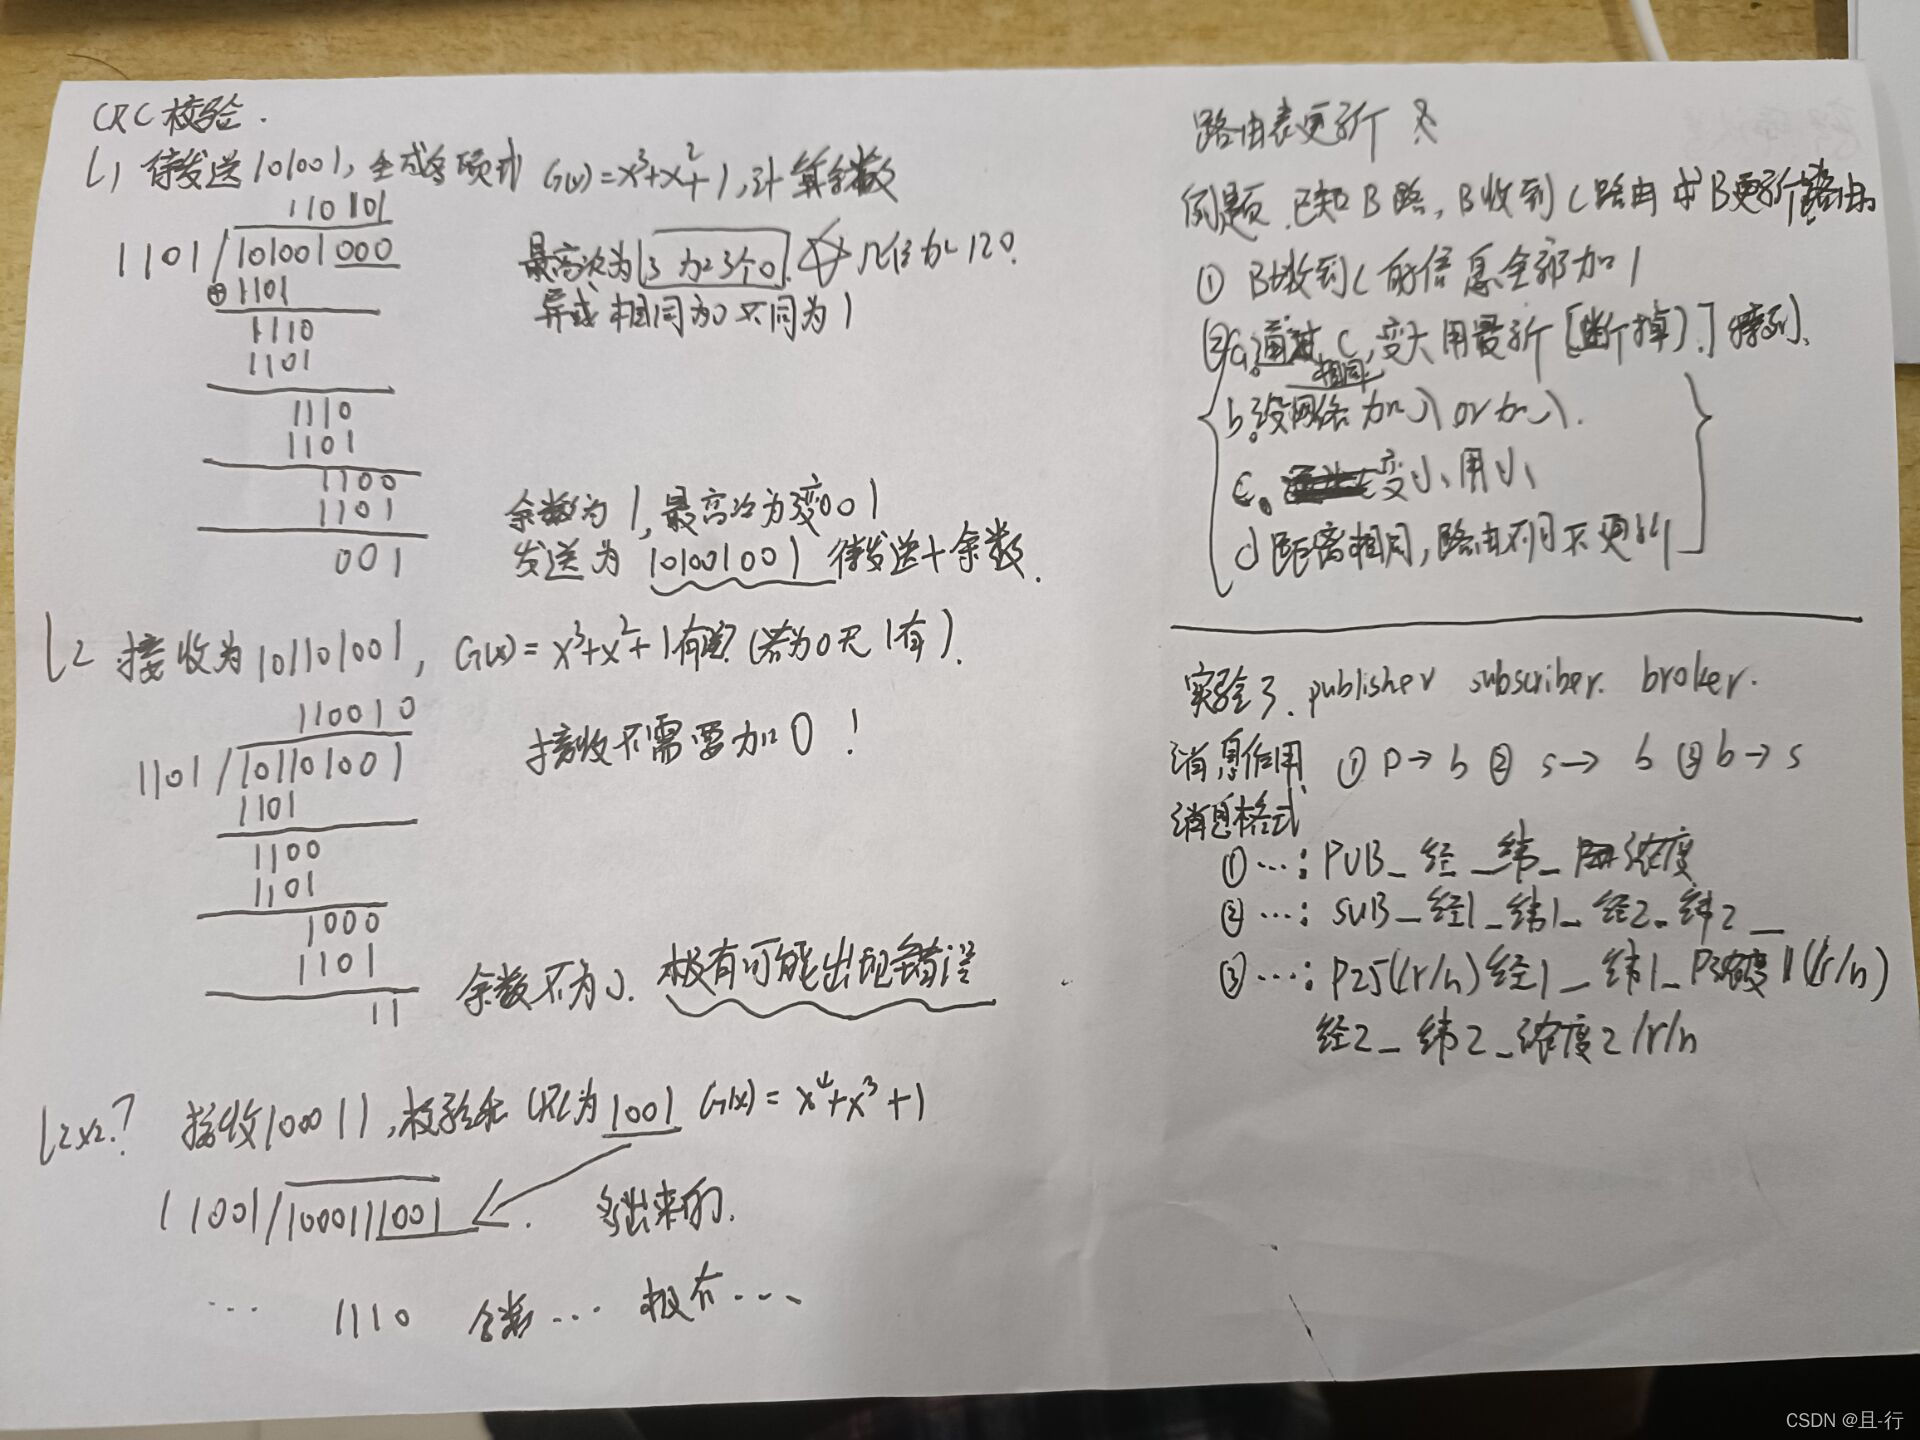 CRC校验.
L1 待发送101001,生成多项式 G(x)=x³+x²+1,计算余数
110101
1101/101001000
⊕1101
1110
1101
1110
1101
1100
1101
001
最高次为3 加3个0 几位加几个0.
异或 相同为0 不同为1
余数为1,最高次为 变001
发送为 101001001 待发送+余数.
L2 接收为101101001, G(x)=x³+x²+1有 (若为0无 1有).
110010
1101/101101001
1101
1100
1101
1000
1101
11
接收不需要加0!
余数不为0. 极有可能出现错误
L2x2.? 接收100011,校验 CRC为1001 G(x)=x⁴+x³+1
11001/1000111001
多出来的.
... 1110 余数... 极有...
路由表更新
例题.已知B路,B收到C路由 求B更新路由.
① B收到C的信息全部加1
② a.通过C,变大用最新[断掉].
相同
b.没网络 加入or加入.
c. 变小用小
d 距离相同,路由不同不更新
实验3.publisher subscriber. broker.
消息作用 ①p→b ②s→b ③b→s
消息格式
①...: PUB_经_纬_浓度
②...: SUB_经1_纬1_经2_纬2_
③...: P25(/r/n)经1_纬1_浓度1(/r/n)
经2_纬2_浓度2/r/n
CSDN @且-行